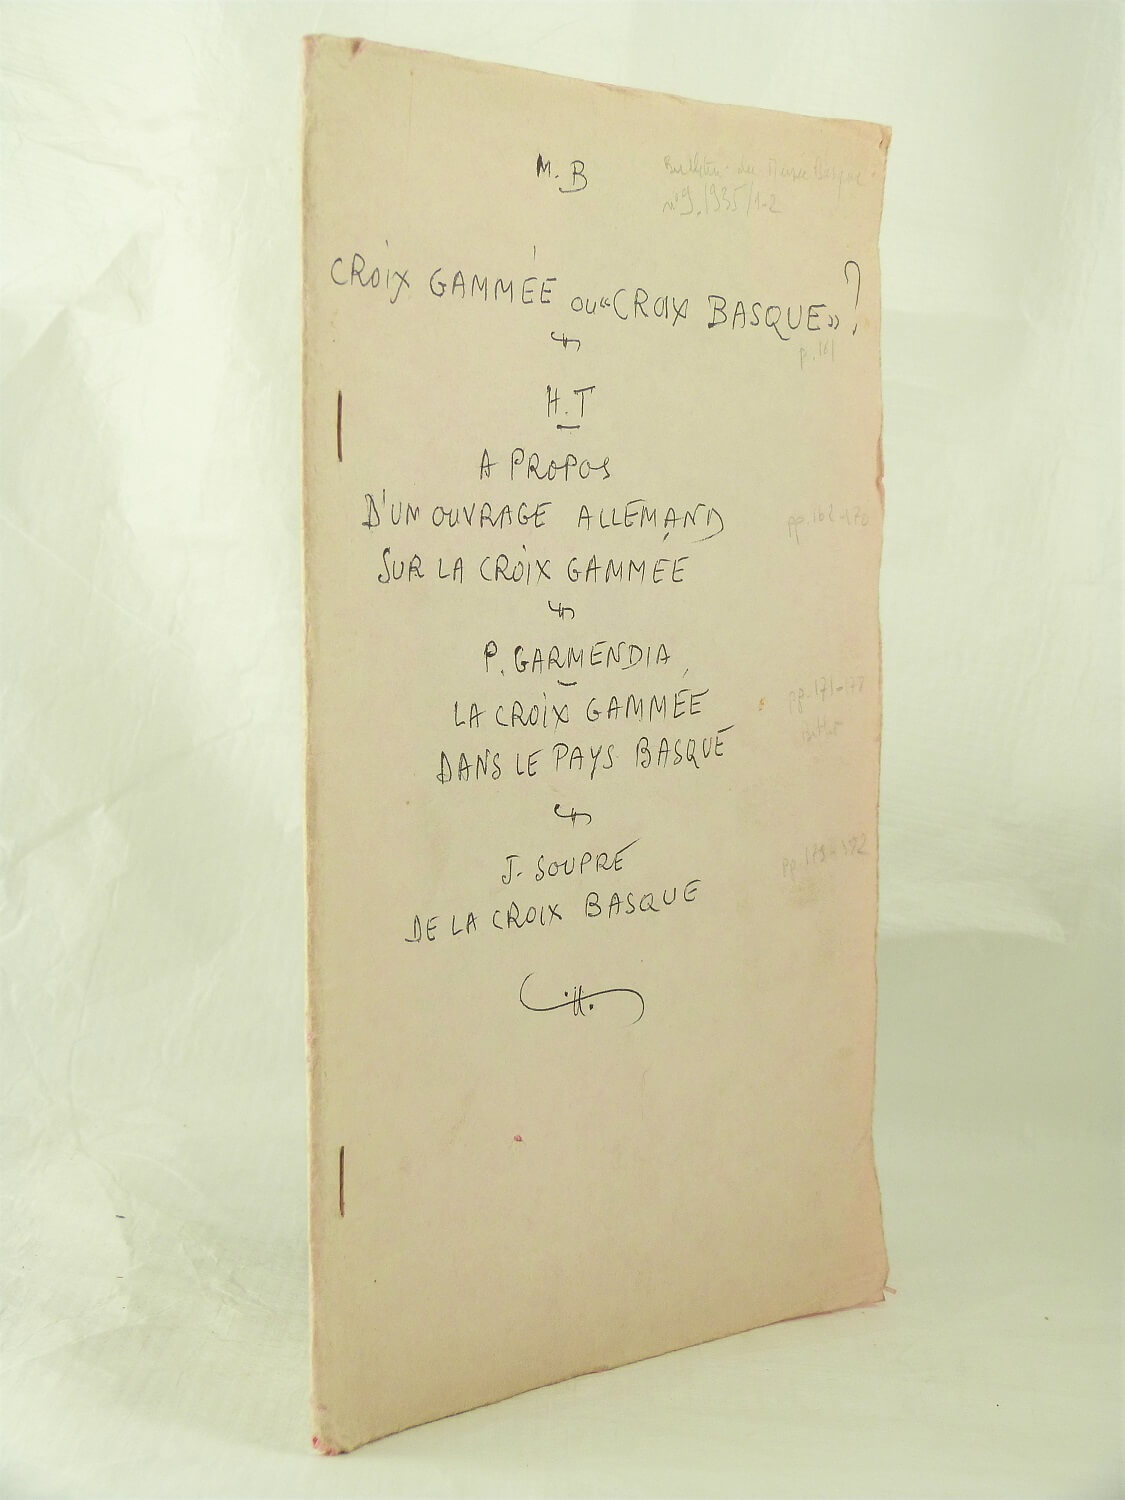 M. B
Bulletin du Musée Basque
n° 9. 1935/1-2
CROIX GAMMÉE OU «CROIX BASQUE» ?
p. 161
H. T
A PROPOS
D'UN OUVRAGE ALLEMAND
pp. 162-170
SUR LA CROIX GAMMÉE
P. GARMENDIA
LA CROIX GAMMÉE
pp. 171-178
DANS LE PAYS BASQUE
J. SOUPRE
DE LA CROIX BASQUE